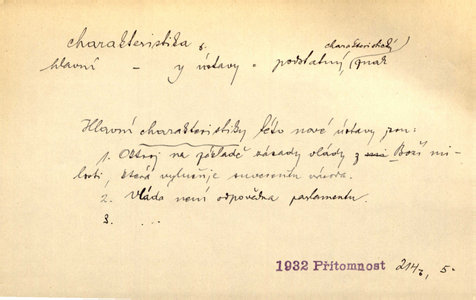 charakteristika f.
charakteristický
hlavní – y ústavy = podstatný, znak
Hlavní charakteristiky této nové ústavy jsou:
1. Oktroj na základě zásady vlády z Boží mi-
losti, která vylučuje suverenitu národa.
2. Vláda není odpovědna parlamentu.
3. ...
1932 Přítomnost 214, 5.